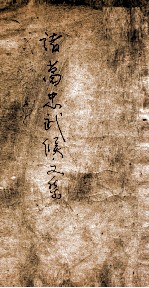 諸葛忠武侯文集